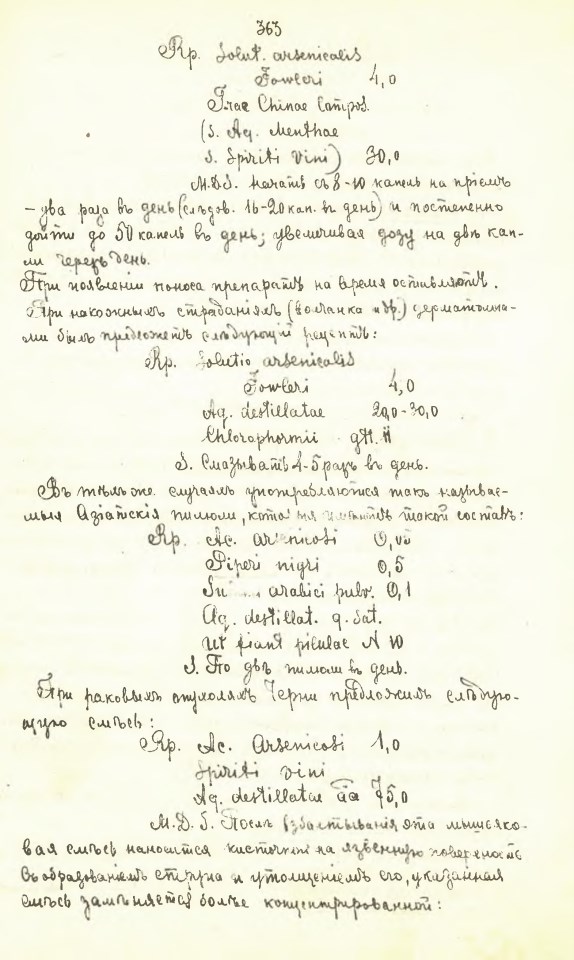 363
Rp. Solut. arsenicalis
Fowleri 4,0
T-rae Chinae Compos.
(s. Aq. Menthae
s. Spiriti vini) 30,0
M.D.S. Начать съ 8-10 капель на пріемъ
– два раза въ день (слѣдов. 16-20 кап. въ день) и постепенно
дойти до 50 капель въ день; увеличивая дозу на двѣ кап-
ли черезъ день.
При появленіи поноса препаратъ на время оставляютъ.
При накожныхъ страданіяхъ (волчанка и др.) дерматолога-
ми былъ предложенъ слѣдующій рецептъ:
Rp. Solutio arsenicalis
Fowleri 4,0
Aq. destillatae 20,0-30,0
Chloraphormii gtt. II
S. Смазывать 4-5 разъ въ день.
Въ тѣхъ же случаяхъ употребляются такъ называе-
мыя Азіатскія пилюли, такой составъ:
Rp. Ac. arsenicosi
Piperi nigri 0,5
arabici pulv. 0,1
Aq. destillat. q. sat.
Ut fiant pilulae N 10
S. По двѣ пилюли въ день.
При раковыхъ опухоляхъ Черни предложилъ слѣдую-
щую смѣсь:
Rp. Ac. Arsenicosi 1,0
Spiriti vini
Aq. destillatae aa 75,0
M.D.S. Послѣ взбалтыванія эта мышьяко-
вая смѣсь наносится кисточкой на язвенную поверхность
Съ образованіемъ струпа и утолщеніемъ его, указанная
смѣсь замѣняется болѣе концентрированной: